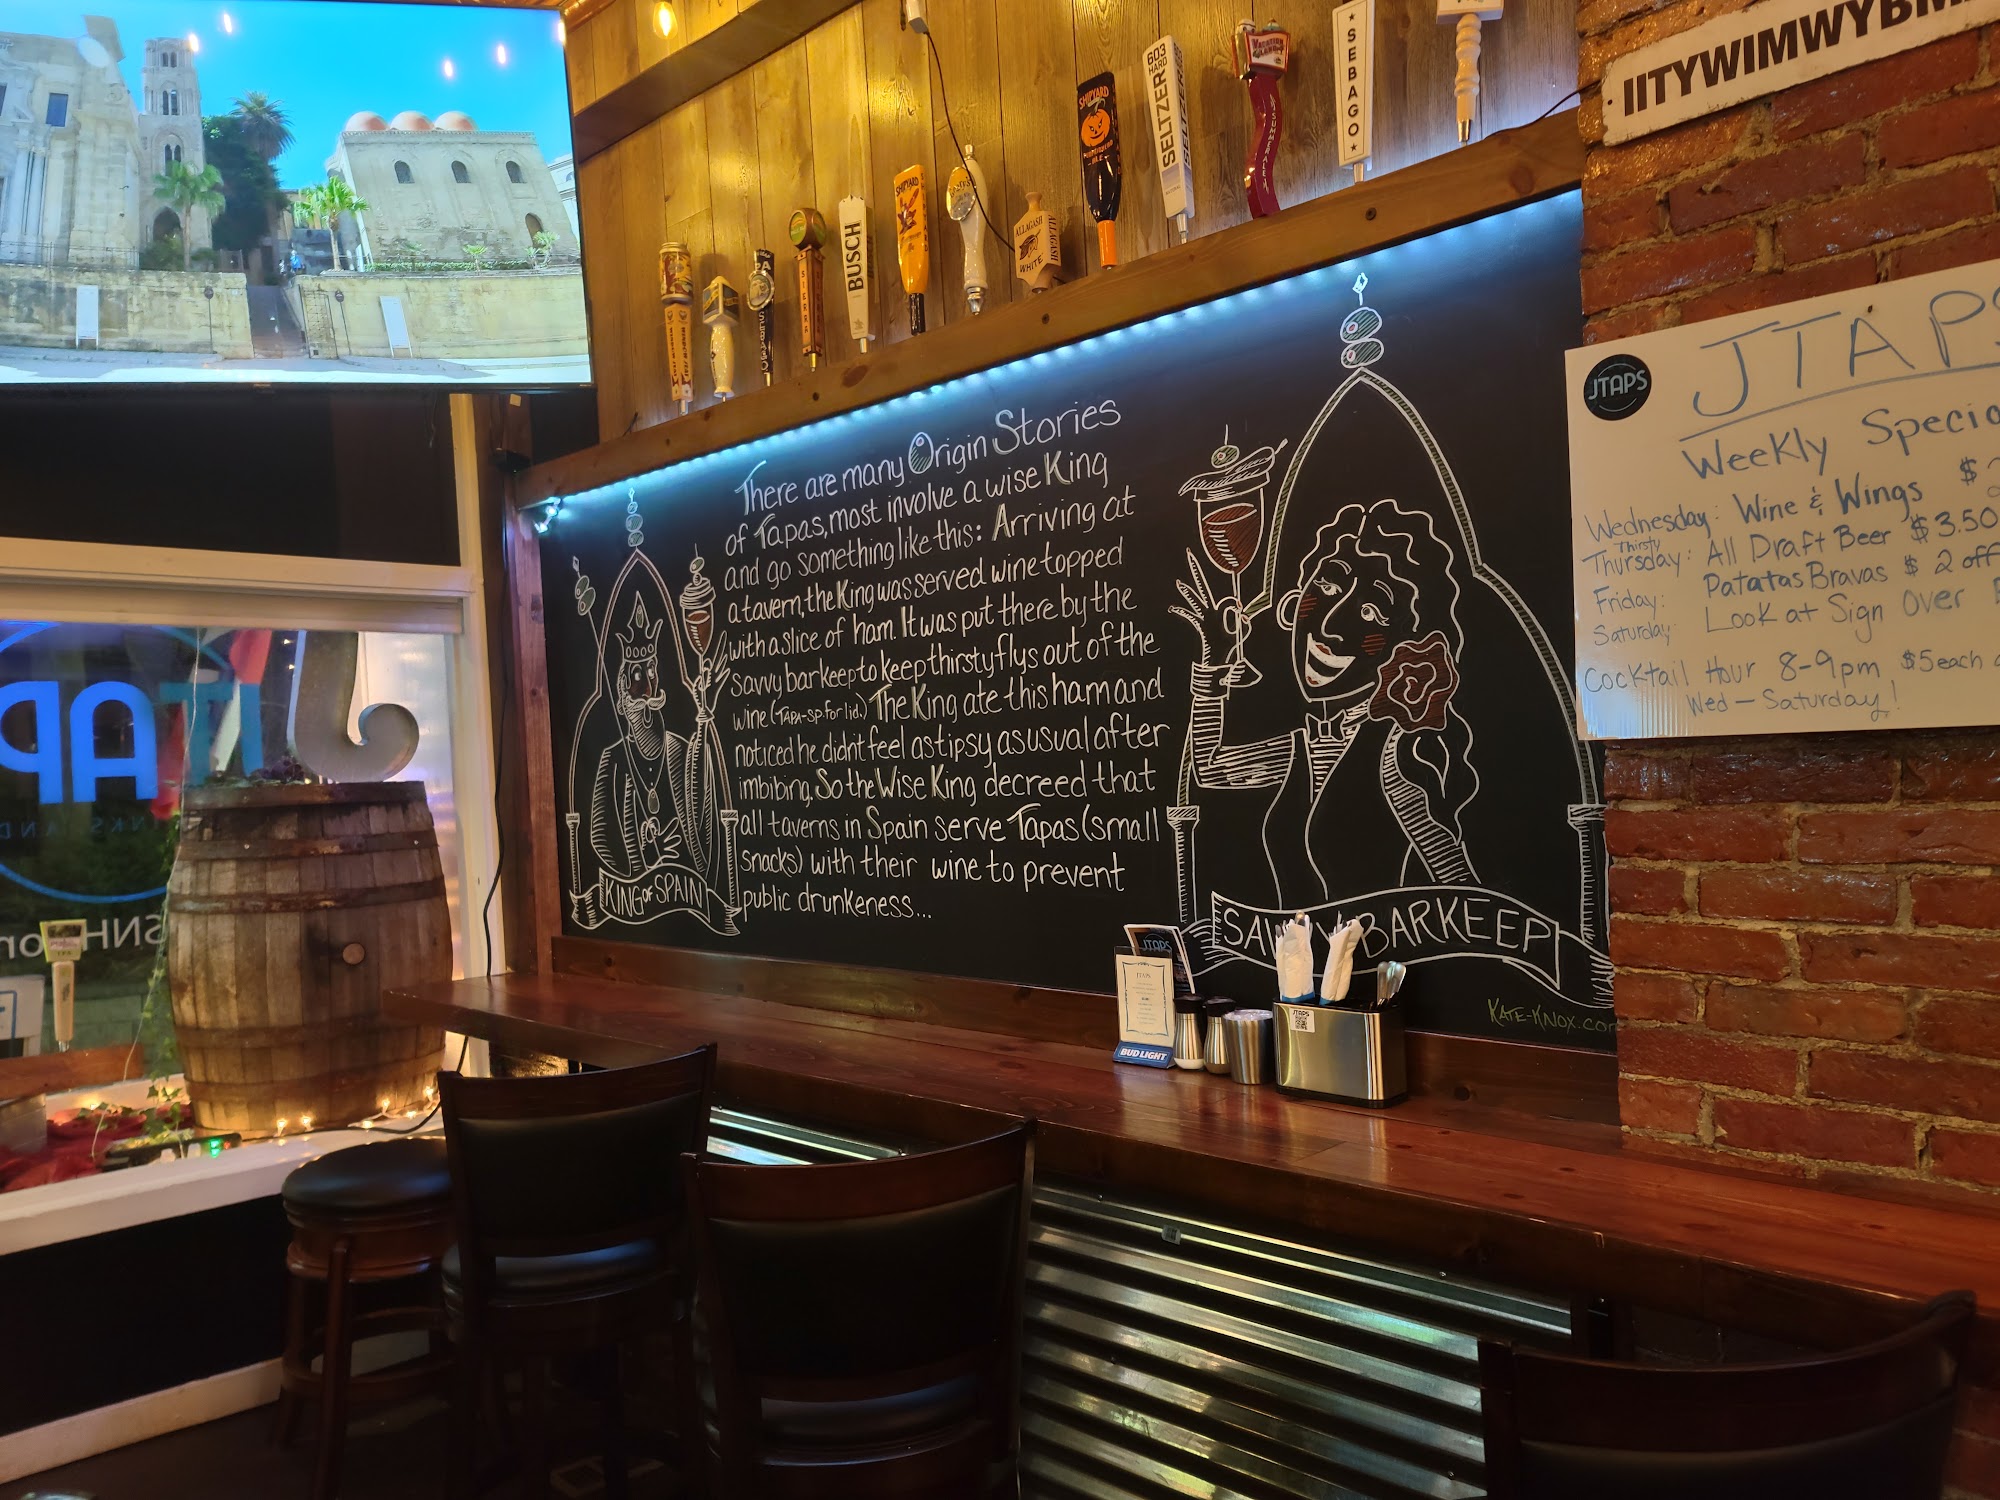 IITYWIMWYBM
SHIPYARD
603
HARD
SELTZER
SELTZER
SUMMER ALE
SEBAGO
SIERRA
BUSCH
SHIPYARD
ALLAGASH
WHITE
ALLAGASH
SEBAGO
There are many Origin Stories
of Tapas, most involve a wise King
and go something like this: Arriving at
a tavern, the King was served wine topped
with a slice of ham. It was put there by the
savvy barkeep to keep thirsty flys out of the
wine (TAPA-sp. for lid.) The King ate this ham and
noticed he didnt feel as tipsy as usual after
imbibing. So the Wise King decreed that
all taverns in Spain serve Tapas (small
snacks) with their wine to prevent
public drunkeness...
KING OF SPAIN
SAVVY BARKEEP
KATE-KNOX.com
JTAPS
JTAPS
Weekly Specia
Wednesday: Wine & Wings $
Thirsty
Thursday: All Draft Beer $3.50
Friday: Patatas Bravas $2 off
Saturday: Look at Sign over
Cocktail Hour 8-9pm $5 each
Wed - Saturday!
JTAPS
JTAPS
BUD LIGHT
JTAPS
JTAP